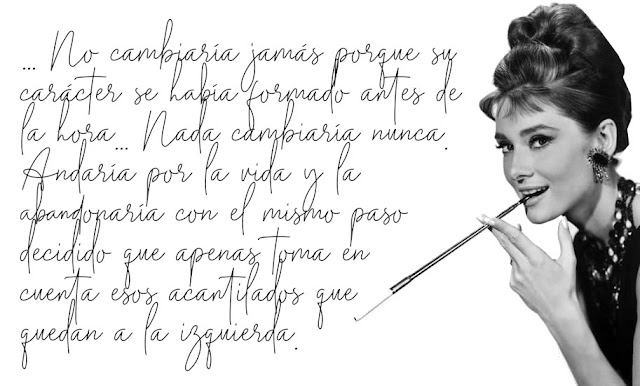 ... No cambiaría jamás porque su
carácter se había formado antes de
la hora... Nada cambiaría nunca.
Andaría por la vida y la
abandonaría con el mismo paso
decidido que apenas toma en
cuenta esos acantilados que
quedan a la izquierda.